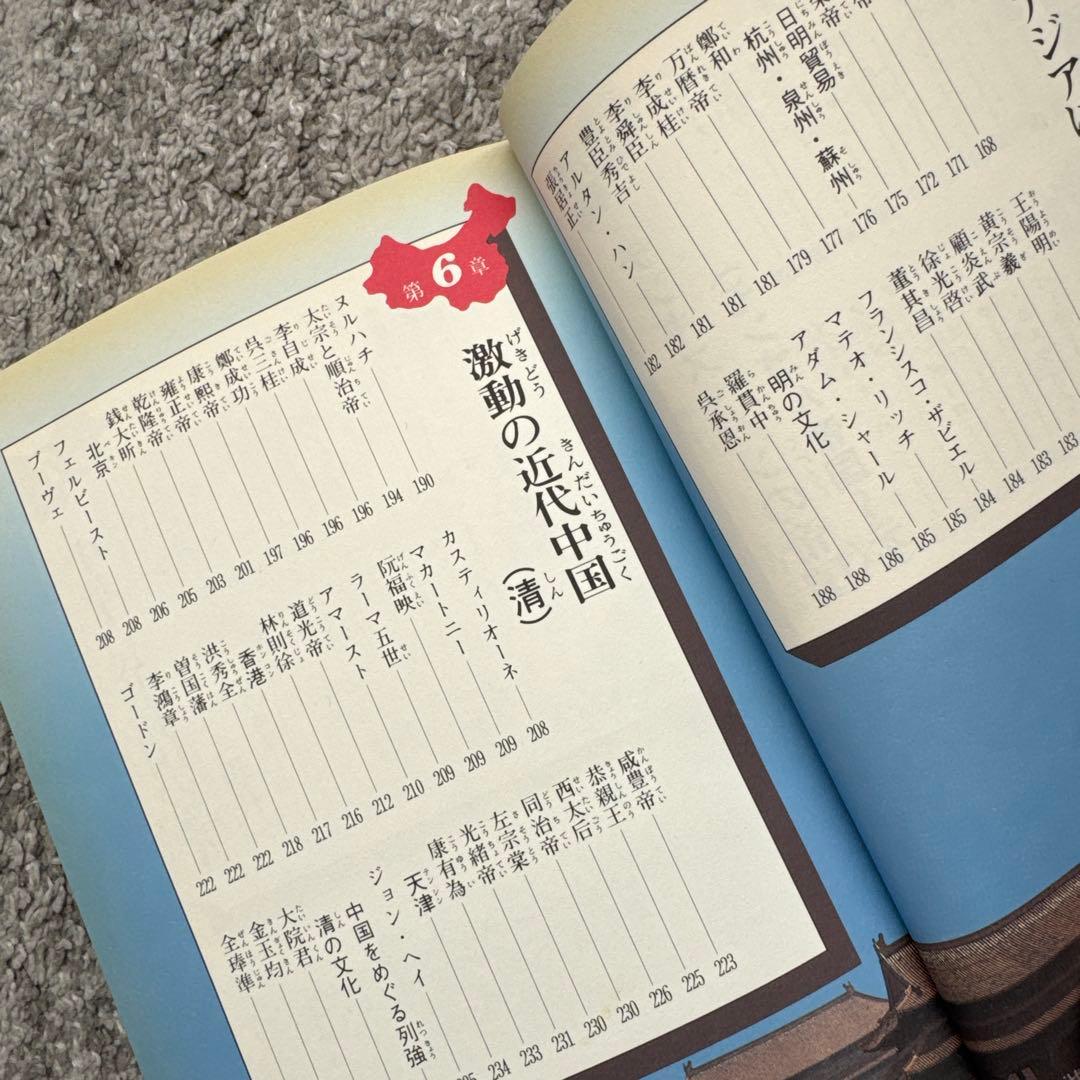 アジアに
帝
171
168
帝 172
日明貿易 175
杭州・泉州・蘇州 176
鄭和 177
万暦帝 179
李成桂 181
李舜臣 181
豊臣秀吉 181
アルタン・ハン 182
張居正 182
王陽明
黄宗羲
顧炎武 183
徐光啓 183
董其昌 184
フランシスコ・ザビエル 184
マテオ・リッチ 185
アダム・シャール 185
明の文化 186
羅貫中 188
呉承恩 188
第6章
激動の近代中国
(清)
ヌルハチ 190
太宗と順治帝 194
李自成 196
呉三桂 196
鄭成功 196
康熙帝 197
雍正帝 201
乾隆帝 203
銭大昕 205
北京 206
フェルビースト 208
ブーヴェ 208
カスティリオーネ 208
マカートニー 209
阮福映 209
ラーマ五世 209
アマースト 210
道光帝 212
林則徐 216
香港 217
洪秀全 218
曽国藩 222
李鴻章 222
ゴードン 222
咸豊帝 223
恭親王 225
西太后 226
同治帝 230
左宗棠 230
光緒帝 231
康有為 233
天津 234
ジョン・ヘイ
中国をめぐる列強
清の文化
大院君
金玉均
全琫準